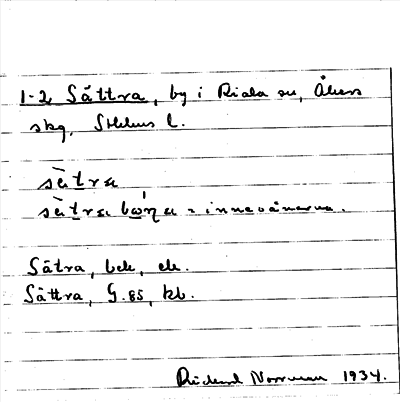 1-2 Sättra, by i Riala sn, Åkers
skg, Sthlms l.
sä̀tra
sä̀tra bωŋa = innevånarna.
Sätra, bek, ek.
Sättra, G. 85, kb.
Rickard Norrman 1934.